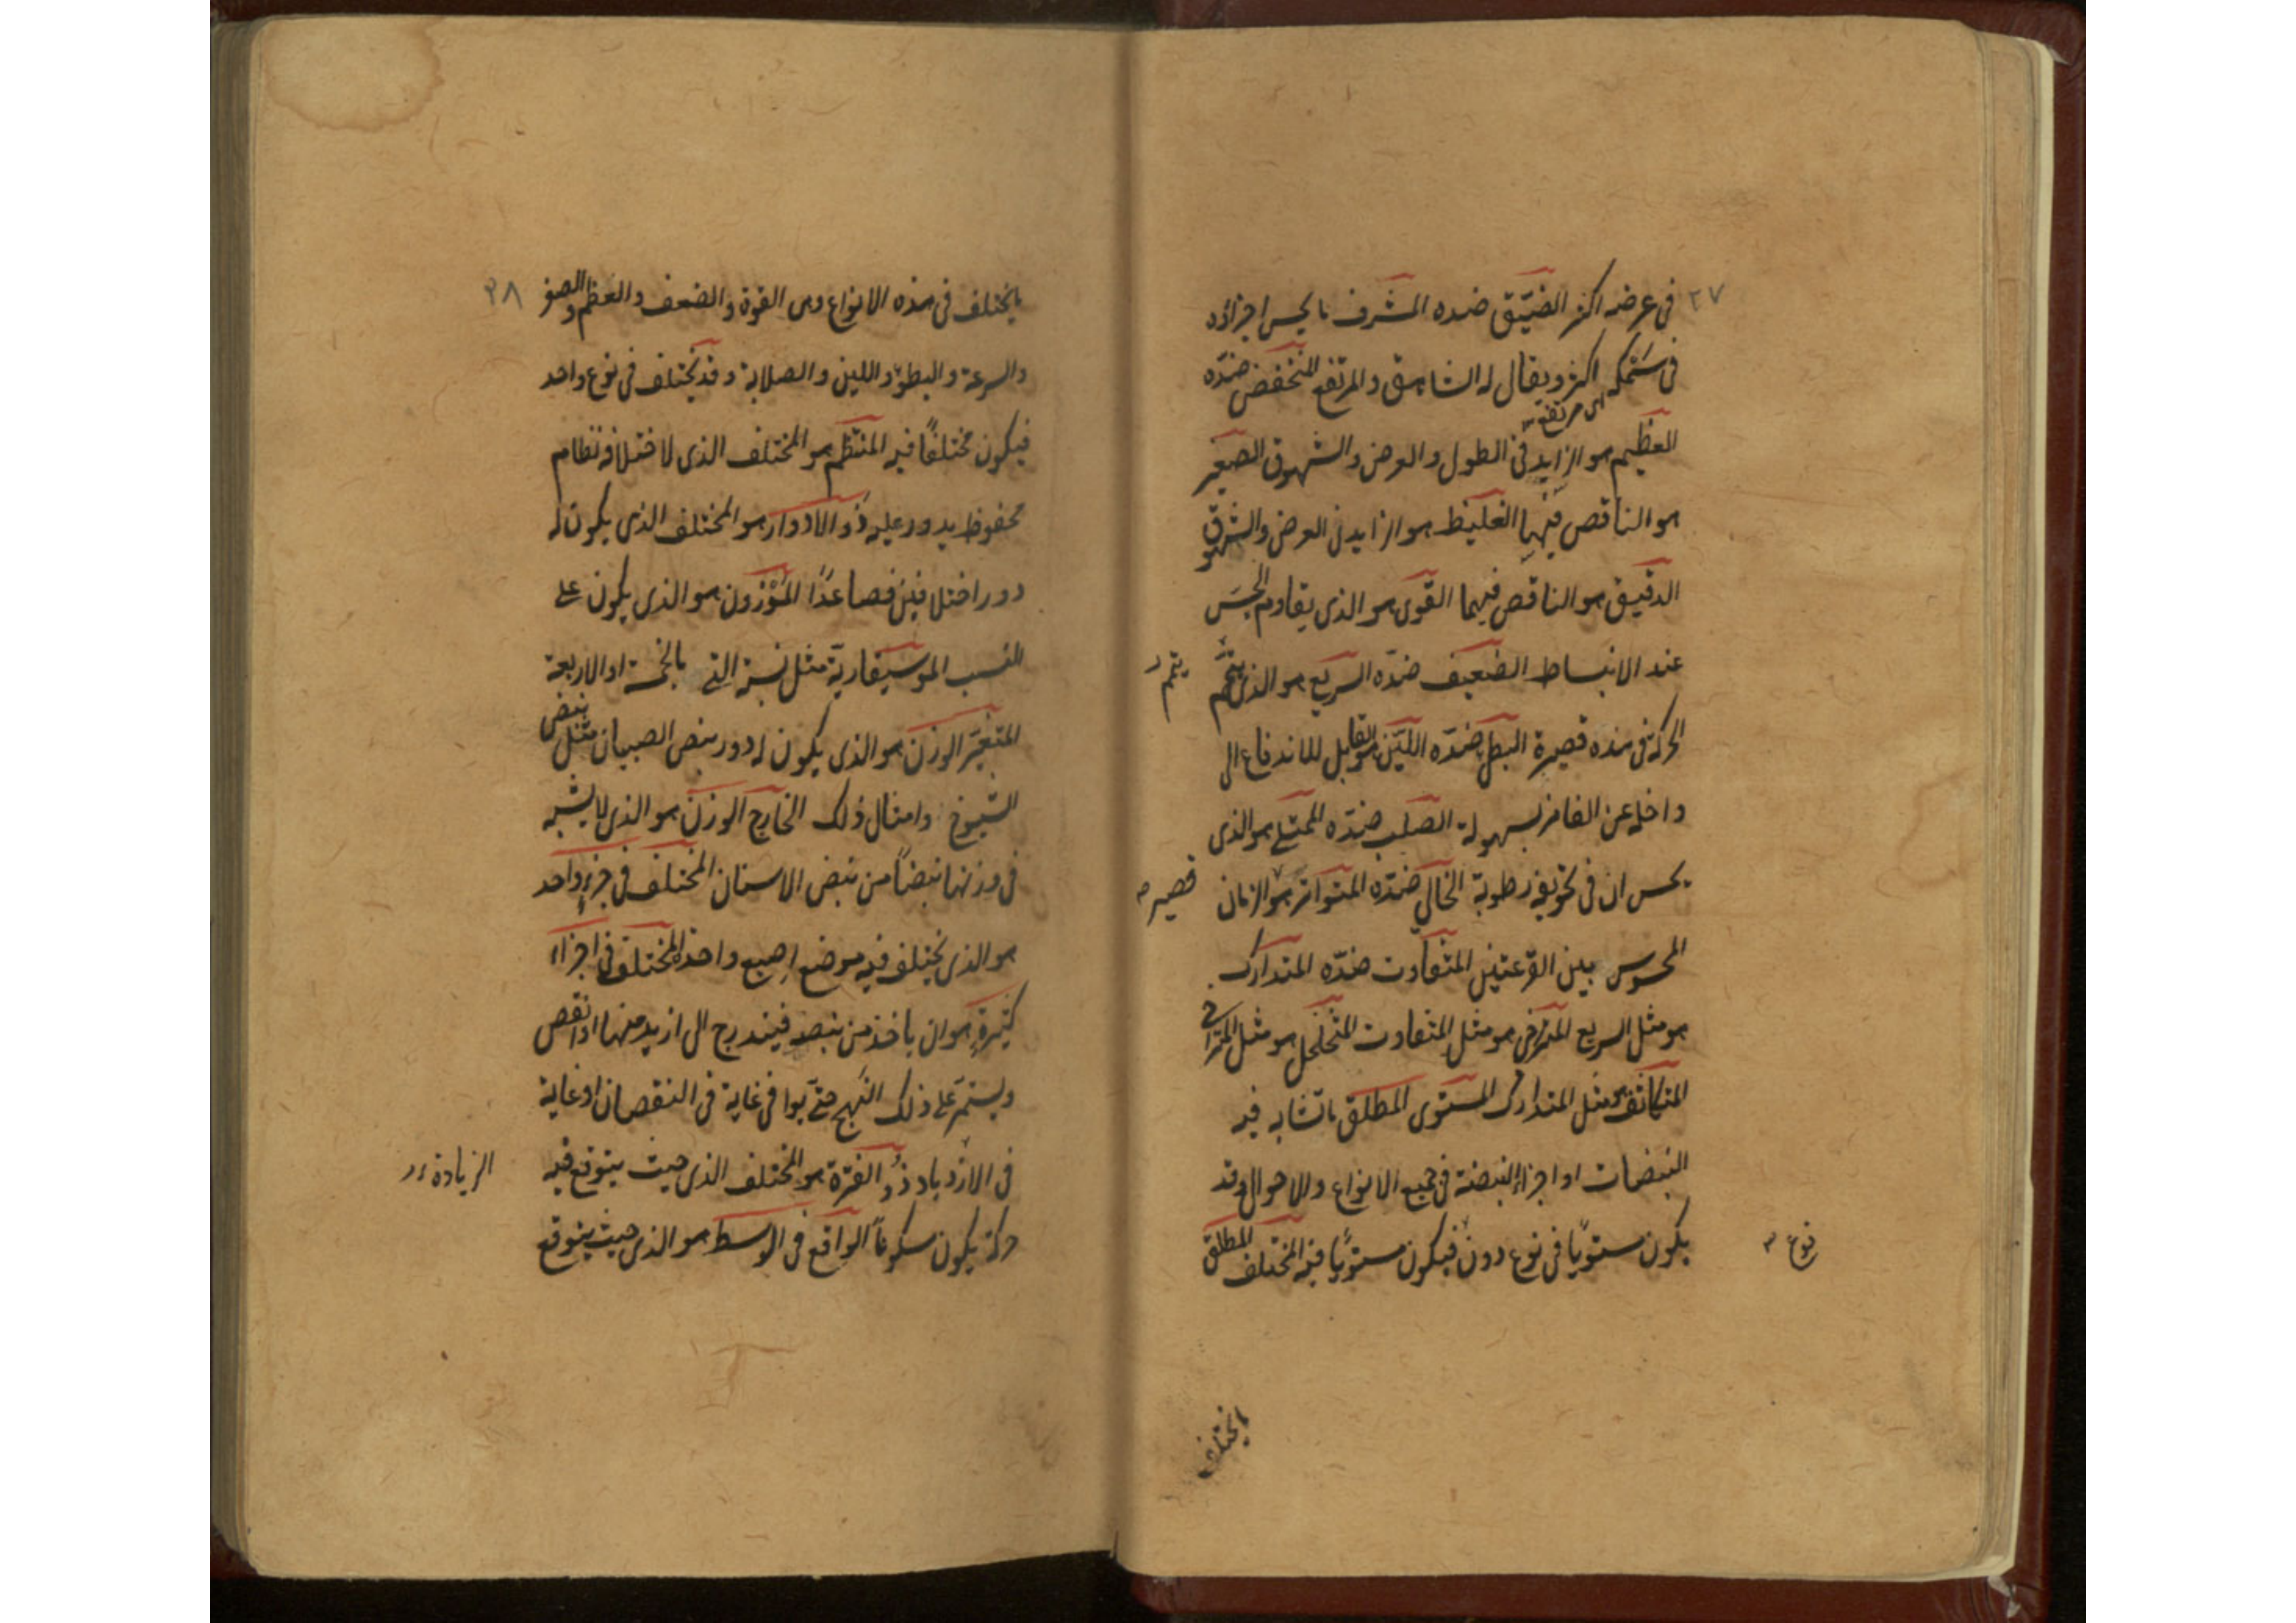 ٢٧
في عرضه اكثر الضيّق ضده المشرف ما يحس اجزاؤه
في سمكه اكثر ويقال له الشاهق والمرتفع المنخفض ضدّه
اى مرتفعة
العظيم هو الزايد في الطول والعرض والشهوق الصغير
هو الناقص فيها الغليظ هو الزايد في العرض والشهوق
الدقيق هو الناقص فيهما القوى هو الذى يقاوم الجسّ
عند الانبساط الضعيف ضدّه السريع هو الذى يتمّم
يتم
الحركة في مدة قصيرة البطئ ضدّه الليّن هو القابل للاندفاع الى
داخل عن الغامز بسهولة الصلب ضدّه الممتلى هو الذى
يحس ان في تجويفه رطوبة الخالي ضدّه المتواتر هو الزمان
قصير
المحسوس بين القرعتين المتفاوت ضدّه المتدارك
هو مثل السريع المتراخى هو مثل المتفاوت المتخلخل هو مثل المتراخى
المتكاثف هو مثل المتدارك المستوى المطلق ما تشابه فيه
النبضات او اجزاء النبضة في جميع الانواع والاحوال وقد
يكون مستويًا في نوع دون فيكون مستويًا فيه المختلف المطلق
نوع
ما يختلف
٣٨
ما يختلف في هذه الانواع وهى القوة والضعف والعظم والصغر
والسرعة والبطوء واللين والصلابة وقد يختلف في نوع واحد
فيكون مختلفًا فيه المنتظم هو المختلف الذى لاختلافه نظام
محفوظ يدور عليه ذو الادوار هو المختلف الذى يكون له
دور اختلافين فصاعدًا المَوْزون هو الذى يكون على
النسب الموسيقاريّة مثل نسبة التى بالخمسة او الاربعة
المتغيّر الوزن هو الذى يكون له دور نبض الصبيان مثل نبض
الشيوخ وامثال ذلك الخارج الوزن هو الذى لا يشبه
في وزنها نبضًا من نبض الاسنان المختلف في جزءٍ واحد
هو الذى يختلف فيه موضع اصبع واحدة المختلف في اجزاء
كثيرةٍ هو ان ياخذ من نبضه فيندرج الى ازيد منها او انقص
ويستمرّ على ذلك النهج حتى يوافى غاية في النقصان او غاية
في الازدياد ذو الفترة هو المختلف الذى حيث يتوقع فيه
الزيادة
حركة يكون سكونًا الواقع في الوسط هو الذى حيث يتوقع